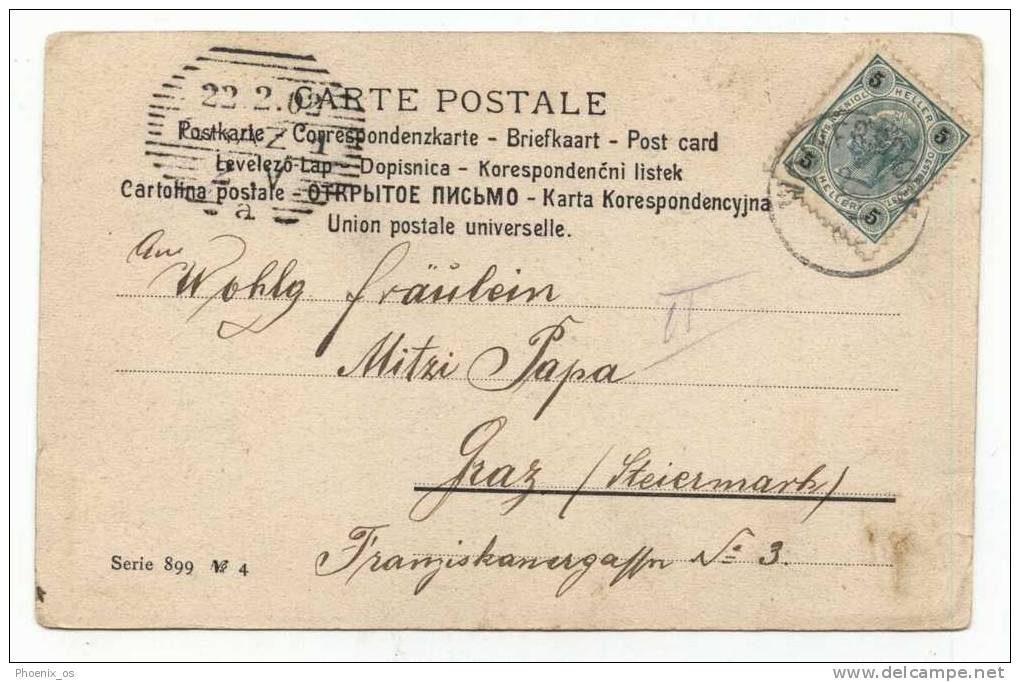 22.2.02
GRAZ 1
V
a
CARTE POSTALE
Postkarte - Correspondenzkarte - Briefkaart - Post card
Levelező-Lap - Dopisnica - Korespondenčni listek
Cartolina postale - ОТКРЫТОЕ ПИСЬМО - Karta Korespondencyjna
Union postale universelle.
5 HELLER 5
5 HELLER 5
An
Wohlg. Fräulein
Mitzi Papa
Graz (Steiermark)
Franziskanergasse No 3.
Serie 899 No 4
Phoenix_os
www.delcampe.net